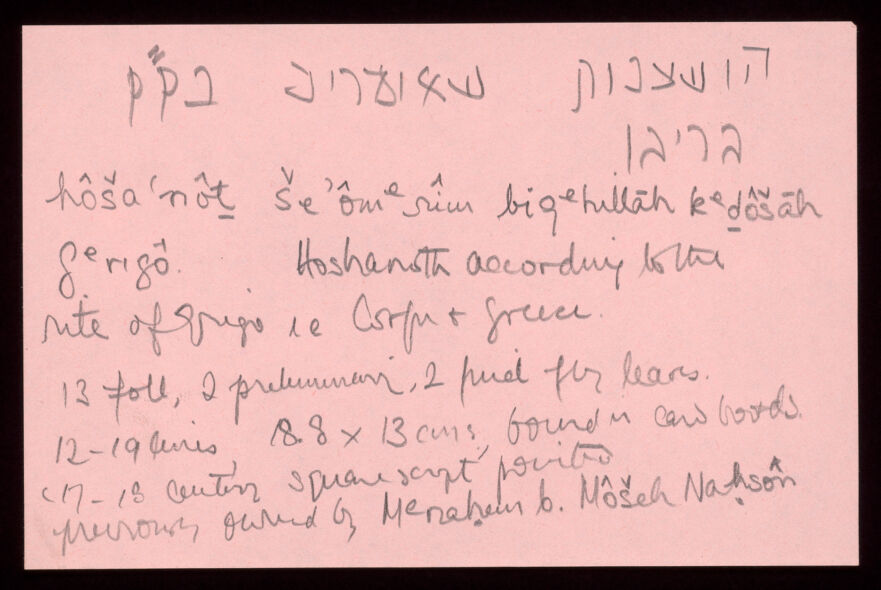 הושענות שאומרים בק״ק
גריגו
hôšaʿnôṯ šeʾômᵉrîm biqᵉhillāh kᵉḏôšāh
gᵉrigô. Hoshanoth according to the
rite of Grigo ie Corfu + Greece.
13 foll, 2 preliminary, 2 final fly leaves.
12-19 lines, 18.8 x 13 cms, bound in card boards.
c17-18 century square script, pointed
previously owned by Mᵉnaḥem b. Môšeh Naḥšôn